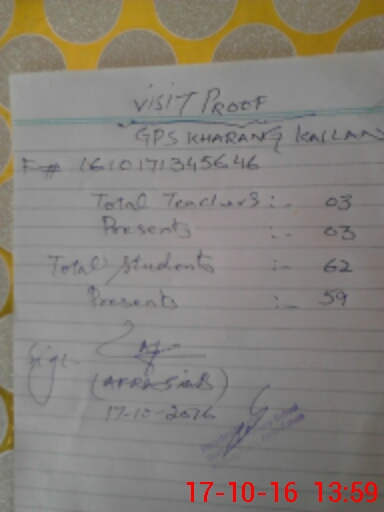 VISIT PROOF
GPS KHARANG KALLAN
F# 1610171345646
Total Teachers :- 03
Presents :- 03
Total Students :- 62
Presents :- 59
Sign:-
(AFRASIAB)
17-10-2016
17-10-16 13:59